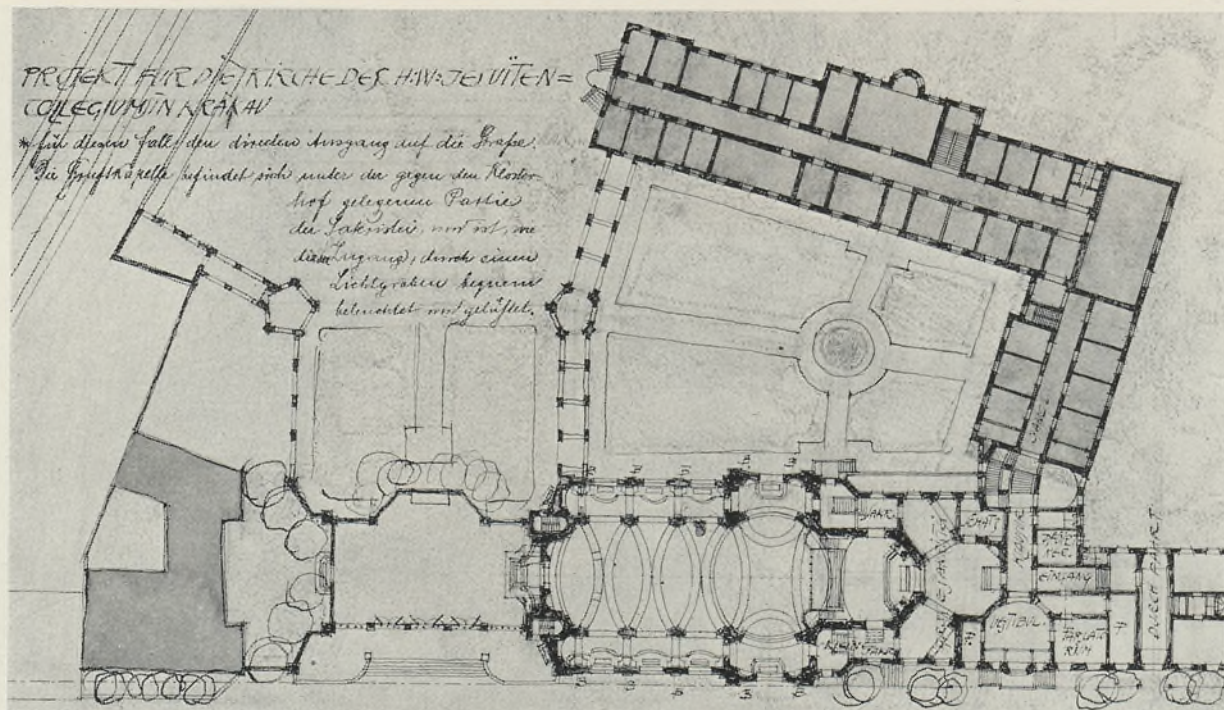 PROJEKT FÜR DIE KIRCHE DER H·W· JESUITEN=
COLLEGIUMS IN KRAKAU
* für diesen Fall den directen Ausgang auf die Straße.
Die Gruftkapelle befindet sich unter der gegen den Kloster
hof gelegenen Partie
der Sakristei, und ist, wie
dieser Zugang, durch einen
Lichtgraben bequem
beleuchtet und gelüftet.
SAKR.
SCHATZ
GROSSE SAKRISTEI
EINGANG
DURCHFAHRT
VESTIBUL.
PARLAT
RIUM
KLEINE SAKR.